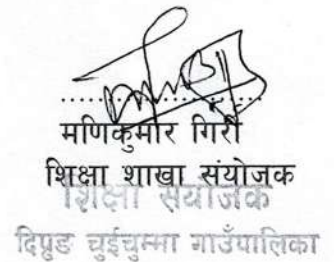 मणिकुमार गिरी
शिक्षा शाखा संयोजक
शिक्षा संयोजक
दिप्रुङ चुईचुम्मा गाउँपालिका